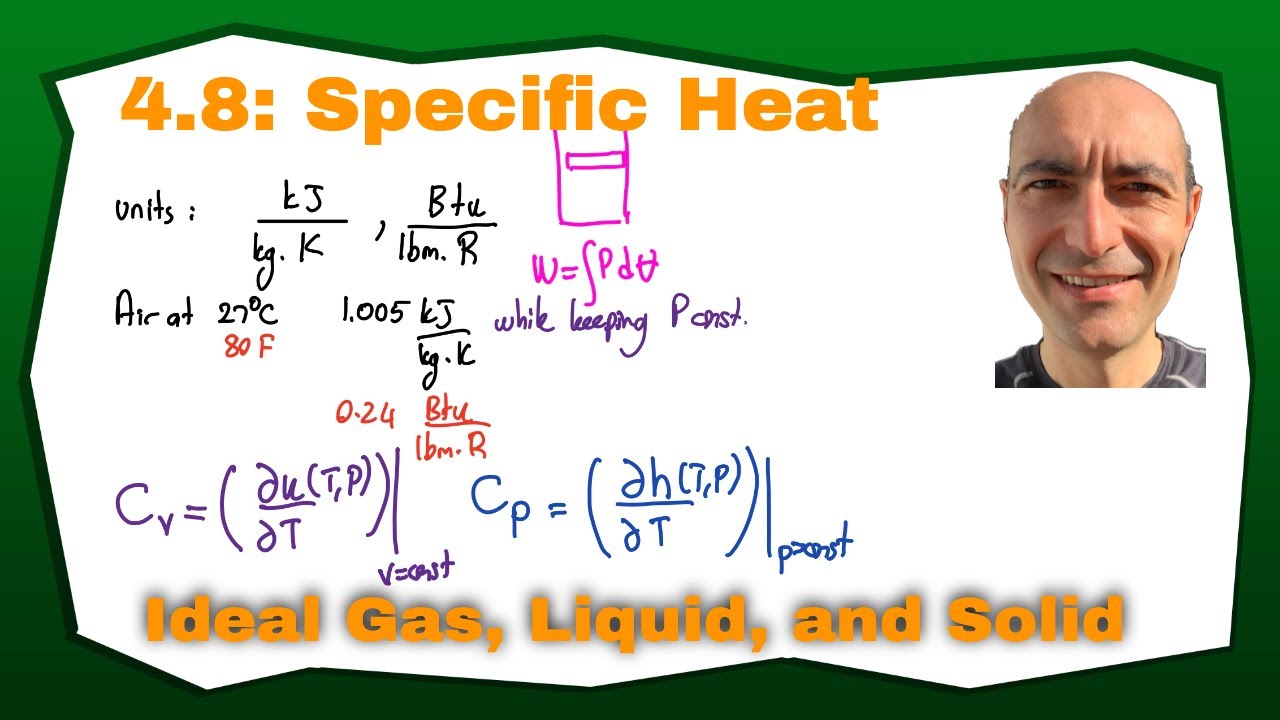 4.8: Specific Heat
units: kJ/kg.K , Btu/lbm.R
W=∫PdV
Air at 27°C 1.005 kJ/kg.K while keeping P const.
80 F
0.24 Btu/lbm.R
Cv = (∂u(T,P)/∂T)|v=const Cp = (∂h(T,P)/∂T)|p=const
Ideal Gas, Liquid, and Solid